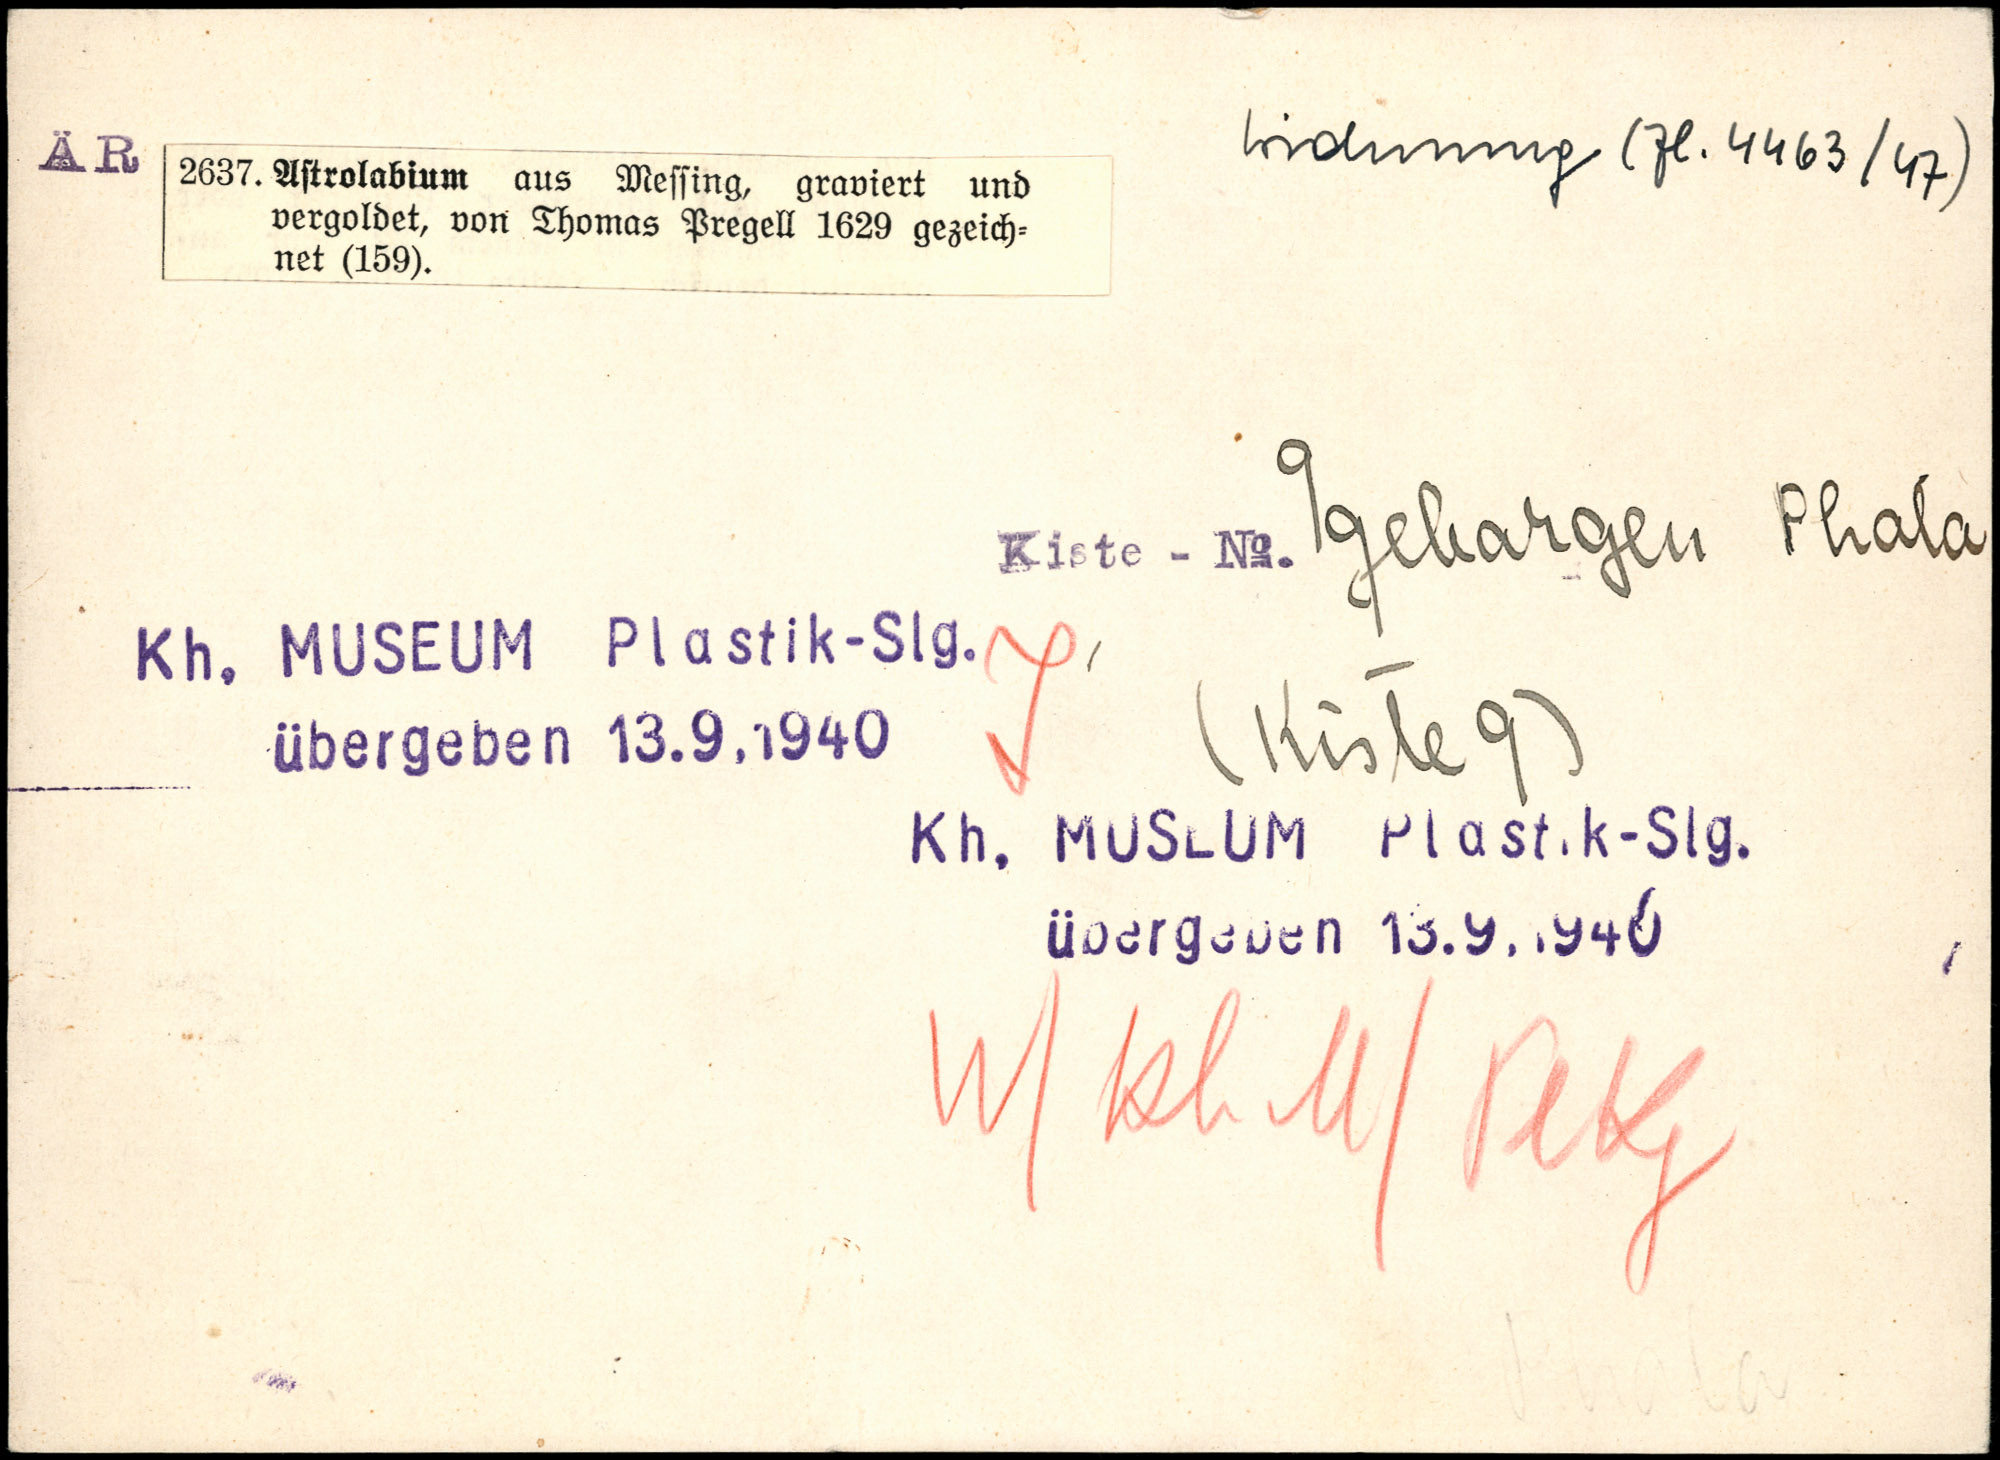 ÄR
2637. Astrolabium aus Messing, graviert und
vergoldet, von Thomas Pregell 1629 gezeich-
net (159).
Widmung (Zl. 4463/47)
Kiste - No. 9 geborgen Phala
Kh. MUSEUM Plastik-Slg.
übergeben 13.9.1940
(Kiste 9)
Kh. MUSEUM Plastik-Slg.
übergeben 13.9.1940
W/ Kh. M/